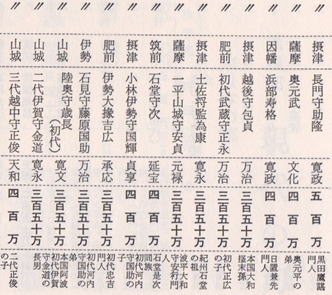 〃 摂津 長門守助隆 寛政 五百万 黒田鷹諶門人
〃 薩摩 奥元武 文化 四百万 奥元平の弟
〃 因幡 浜部寿格 寛政 四百万 日置兼先門人
〃 摂津 越後守包貞 万治 三百五十万 本国大和手掻末孫
〃 肥前 初代武蔵守正永 万治 三百五十万 初代正広の子
〃 摂津 土佐将監為康 寛永 三百五十万 紀州石堂の祖
〃 薩摩 一平山城守安貞 元禄 三百五十万 波平大和守安行門人
〃 筑前 石堂守次 延宝 四百万 石堂是次同族
〃 摂津 小林伊勢守国輝 貞享 四百万 初代河内守国助の子
〃 肥前 伊勢大掾吉広 承応 三百五十万 初代忠吉門人
〃 伊勢 石見守藤原国助 万治 三百五十万 初代河内守国助の弟
〃 山城 陸奥守歳長(初代) 寛文 三百五十万 本国阿波
〃 山城 二代伊賀守金道 寛永 三百五十万 初代伊賀守金道の長男
〃 山城 三代越中守正俊 天和 四百万 二代正俊の子